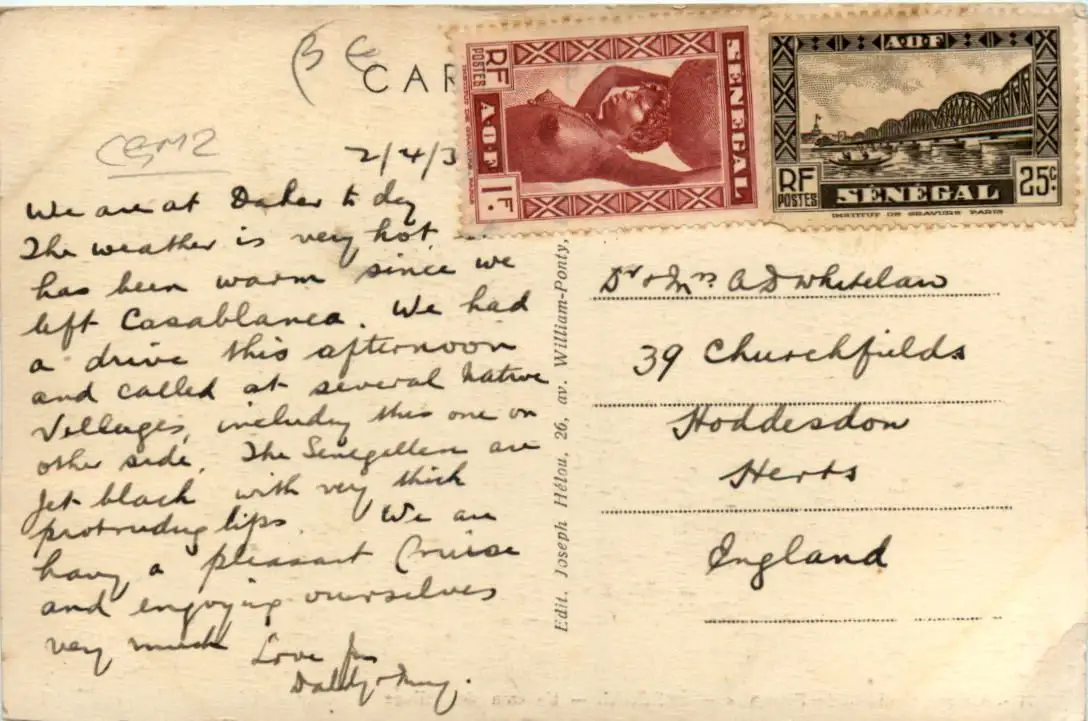 CAR
CGM2
2/4/3
We are at Daker to day
The weather is very hot
has been warm since we
left Casablanca. We had
a drive this afternoon
and called at several Native
Villages, including this one on
other side. The Senegallese are
Jet black with very thick
protruding lips. We are
having a pleasant Cruise
and enjoying ourselves
very much Love from
Daddy &
RF
POSTES
A·O·F
1F.
SÉNÉGAL
A·O·F
RF
POSTES
SÉNÉGAL
25c.
INSTITUT DE GRAVURE PARIS
Edit. Joseph Hélou, 26, av. William-Ponty,
Dr & Mrs A D Whitelaw
39 Churchfields
Hoddesdon
Herts
England